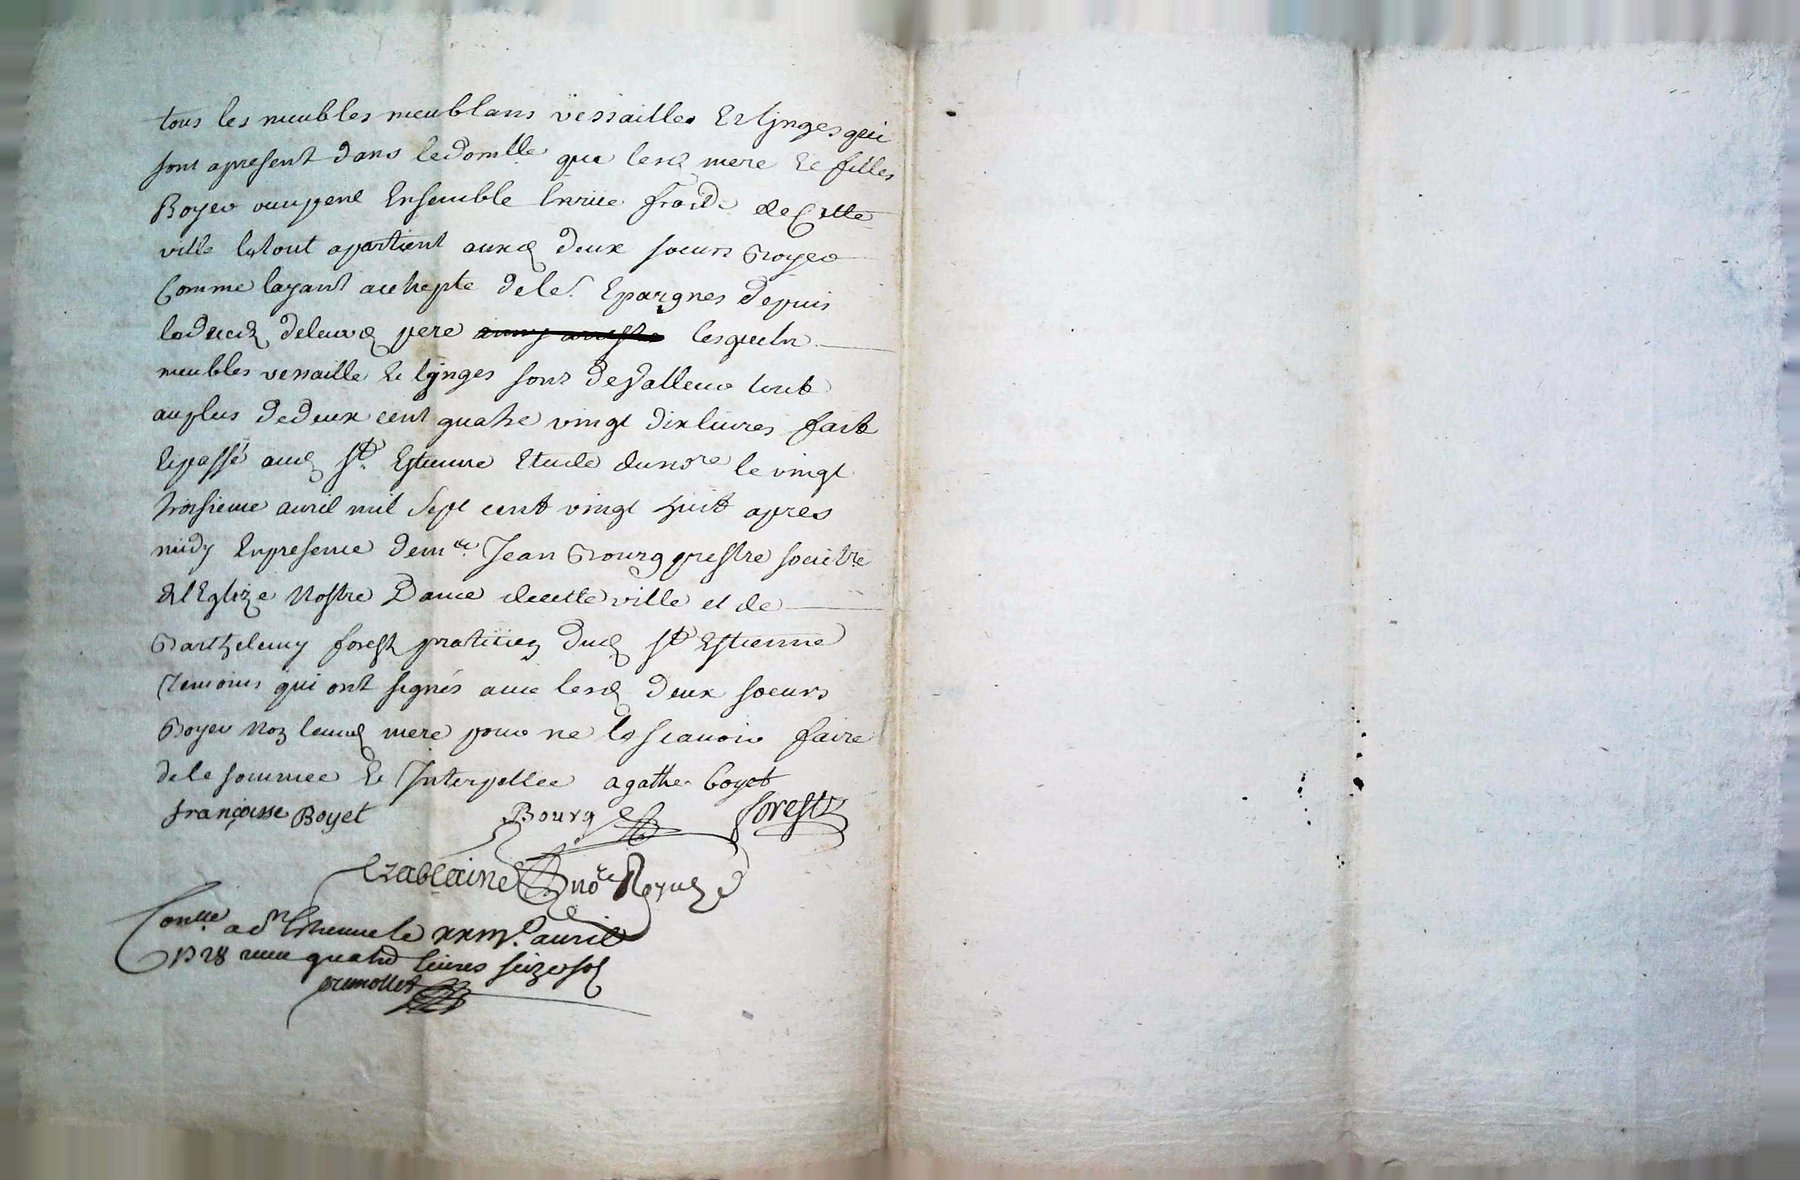 tous les meubles meublans vessailles Et lynges qui
sont apresent dans ledomlle que lesd mere Et filles
Boyer occupent Ensemble Enrüe froide deCette
ville letout apartient auxd deux soeurs Boyer
Comme layant achepte deleS Epargnes depuis
ledeced deleurd pere lesquels
meubles vessaille Et lynges sont devalleur tout
auplus dedeux cent quatre vingt dix livres fait
Et passé aud St Estienne Etude dunore le vingt
troisieme avril mil sept cent vingt huit apres
midy Enpresence deme Jean Bourg prestre societre
del Eglize Nostre Dame decette ville et de
Barthelemy forest praticien dud St Estienne
Temoins qui ont signés avec lesd deux soeurs
Boyer Non leurd mere pour ne le scavoir faire
dele sommee Et Interpellee agathe boyet
françoise Boyet Bourg forest
nore Royal
Conlle a St Estienne le xxiije avril
1728 receu quatre livres seize sols